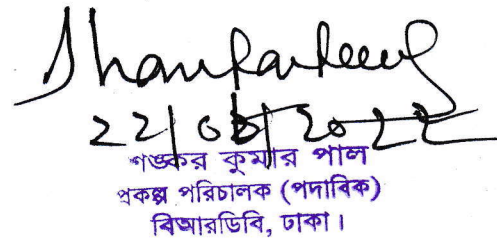 22/06/2022
শঙ্কর কুমার পাল
প্রকল্প পরিচালক (পদাবিক)
বিআরডিবি, ঢাকা।